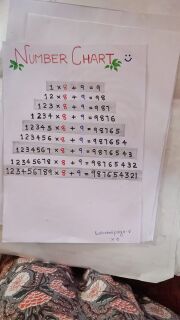 NUMBER CHART
1 × 8 + 9 = 9
12 × 8 + 9 = 98
123 × 8 + 9 = 987
1234 × 8 + 9 = 9876
12345 × 8 + 9 = 98765
123456 × 8 + 9 = 987654
1234567 × 8 + 9 = 9876543
12345678 × 8 + 9 = 98765432
123456789 × 8 + 9 = 987654321